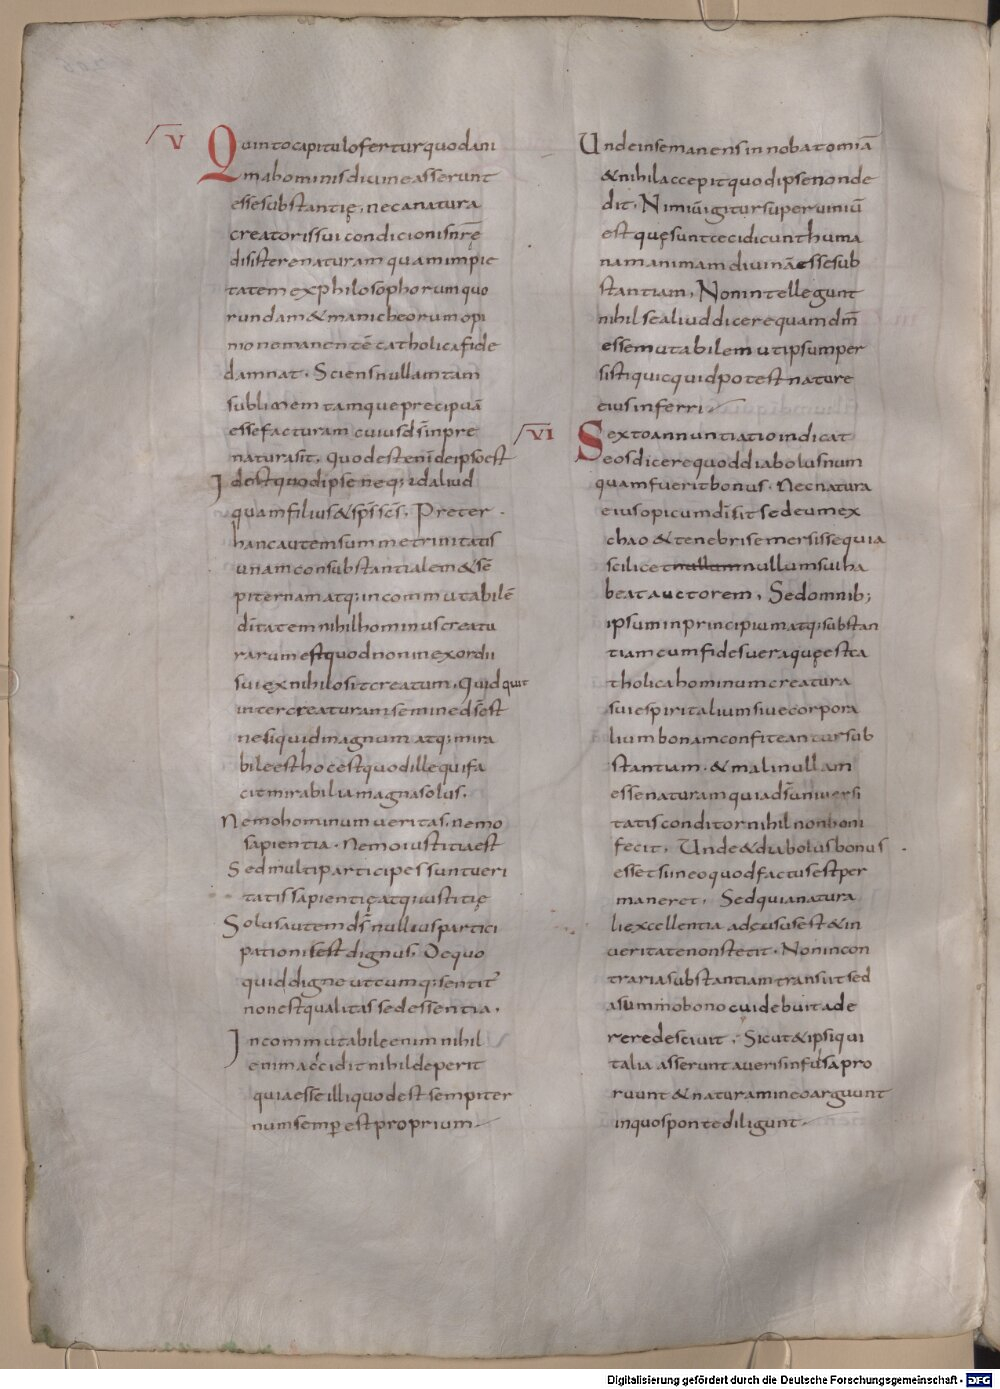 V
Quinto capitulo fertur quod ani
ma hominis divine asserunt
esse substantię, nec a natura
creatoris sui condicionis nr̄ę
disistere naturam quam impie
tatem ex philosophorum quo
rundam & manicheorum opi
nione manentē catholica fide
damnat. Sciens nullam tam
sublimem tamque precipuā
esse facturam cuius ds̄ inpre
natura sit, quod est enī de ipso est
Id est quod ipse neq; aliud
quam filius & sp̄s sc̄s. Preter
hanc autem summe trinitatis
unam consubstantialem & sē
piternam atq; incommutabilē
dītatem nihil hominus creatu
rarum est quod non in exordii
sui ex nihilo sit creatum, Quid quit
inter creaturam semined s̄ est
nesi quid magnum atq; mira
bile est hoc est quod ille qui fa
cit mirabilia magna solus.
Nemo hominum veritas, nemo
sapientia. Nemo iustitia est
Sed multi participes sunt veri
tatis sapientię atq; iustitię
Solus autem ds̄ nullius partici
pationis est dignus, De quo
quid digne utcumq; sentit
non est qualitas sed essentia.
Incommutabile enim nihil
enim accidit nihil deperit
quia esse illi quod est sempiter
num semp̄ est proprium
Unde in se manens innoba tomiā
& nihil accepit quod ipse non de
dit. Nimiū igitur super viniū
est quę sunt tecidicunt huma
nam animam divinā esse sub
stantiam, Non intellegunt
nihil se aliud dicere quam dm̄
esse mutabilem ut ipsum per
sisti quicquid potest nature
eius inferri
VI
Sexto annuntiatio indicat
eos dicere quod diabolus num
quam fuerit bonus. Nec natura
eius opicum dī sit sed eum ex
chao & tenebris emersisse quia
scilicet nullam nullum sui ha
beat auctorem, Sed omnib;
ipsum inprincipium atq; substan
tiam cum fides vera quę est ca
tholica hominum creatura
sui espiritalium sive corpora
lium bonam confiteantur sub
stantiam. & mali nullam
esse naturam quia ds̄ universi
tatis conditor nihil non boni
fecit, Unde & diabolus bonus
esset si in eo quod factus est per
maneret, Sed quia natura
li excellentia ad cusus est & in
veritate non stetit. Non in con
traria substantiam transiit sed
a summo bono cui debuit ade
rere descivit. Sicut & ipsi qui
talia asserunt a veris in falsa pro
ruunt & naturam in eo arguunt
in quo sponte diligunt.
Digitalisierung gefördert durch die Deutsche Forschungsgemeinschaft - DFG